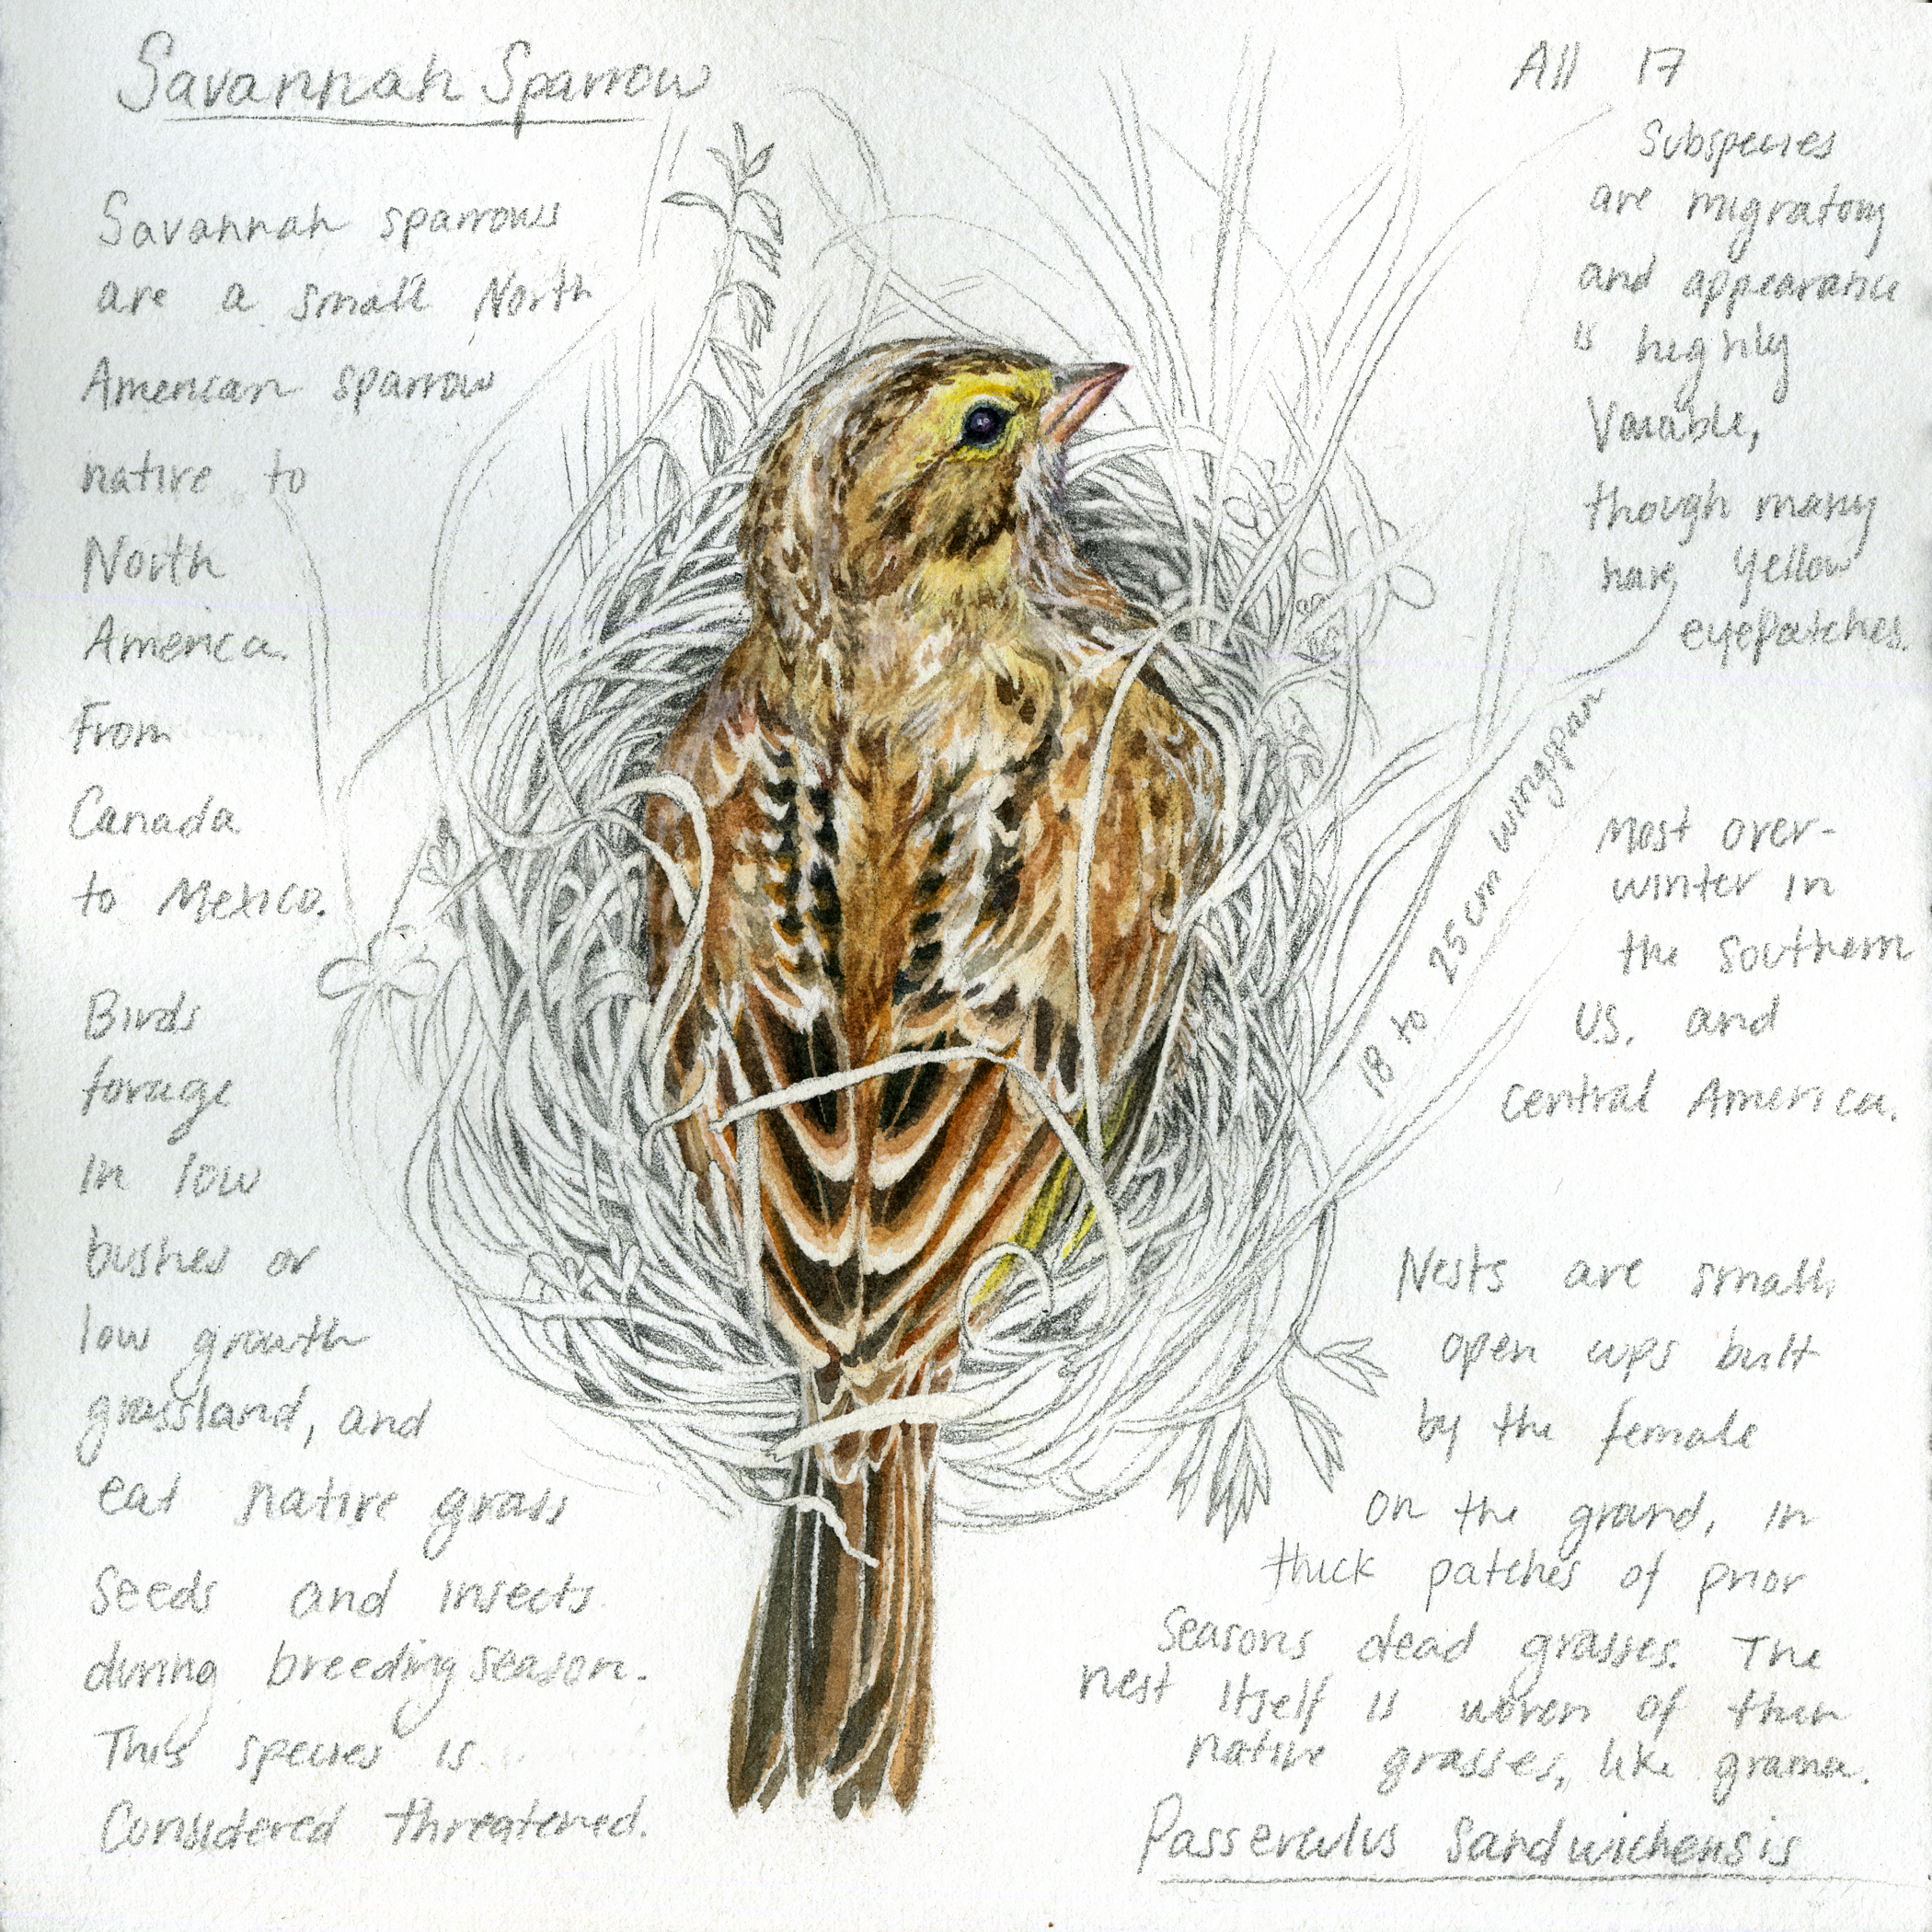 Savannah Sparrow
Savannah sparrows
are a small North
American sparrow
native to
North
America.
From
Canada
to Mexico.
Birds
forage
in low
bushes or
low growth
grassland, and
eat native grass
seeds and insects
during breeding season.
This species is
Considered threatened.
All 17
Subspecies
are migratory
and appearance
is highly
Variable,
though many
have Yellow
eyepatches.
18 to 25 cm wingspan
Most over-
winter in
the southern
U.S. and
central America.
Nests are small,
open cups built
by the female
on the ground, in
thick patches of prior
Seasons dead grasses. The
nest itself is woven of thin
native grasses, like grama.
Passerculus Sandwichensis